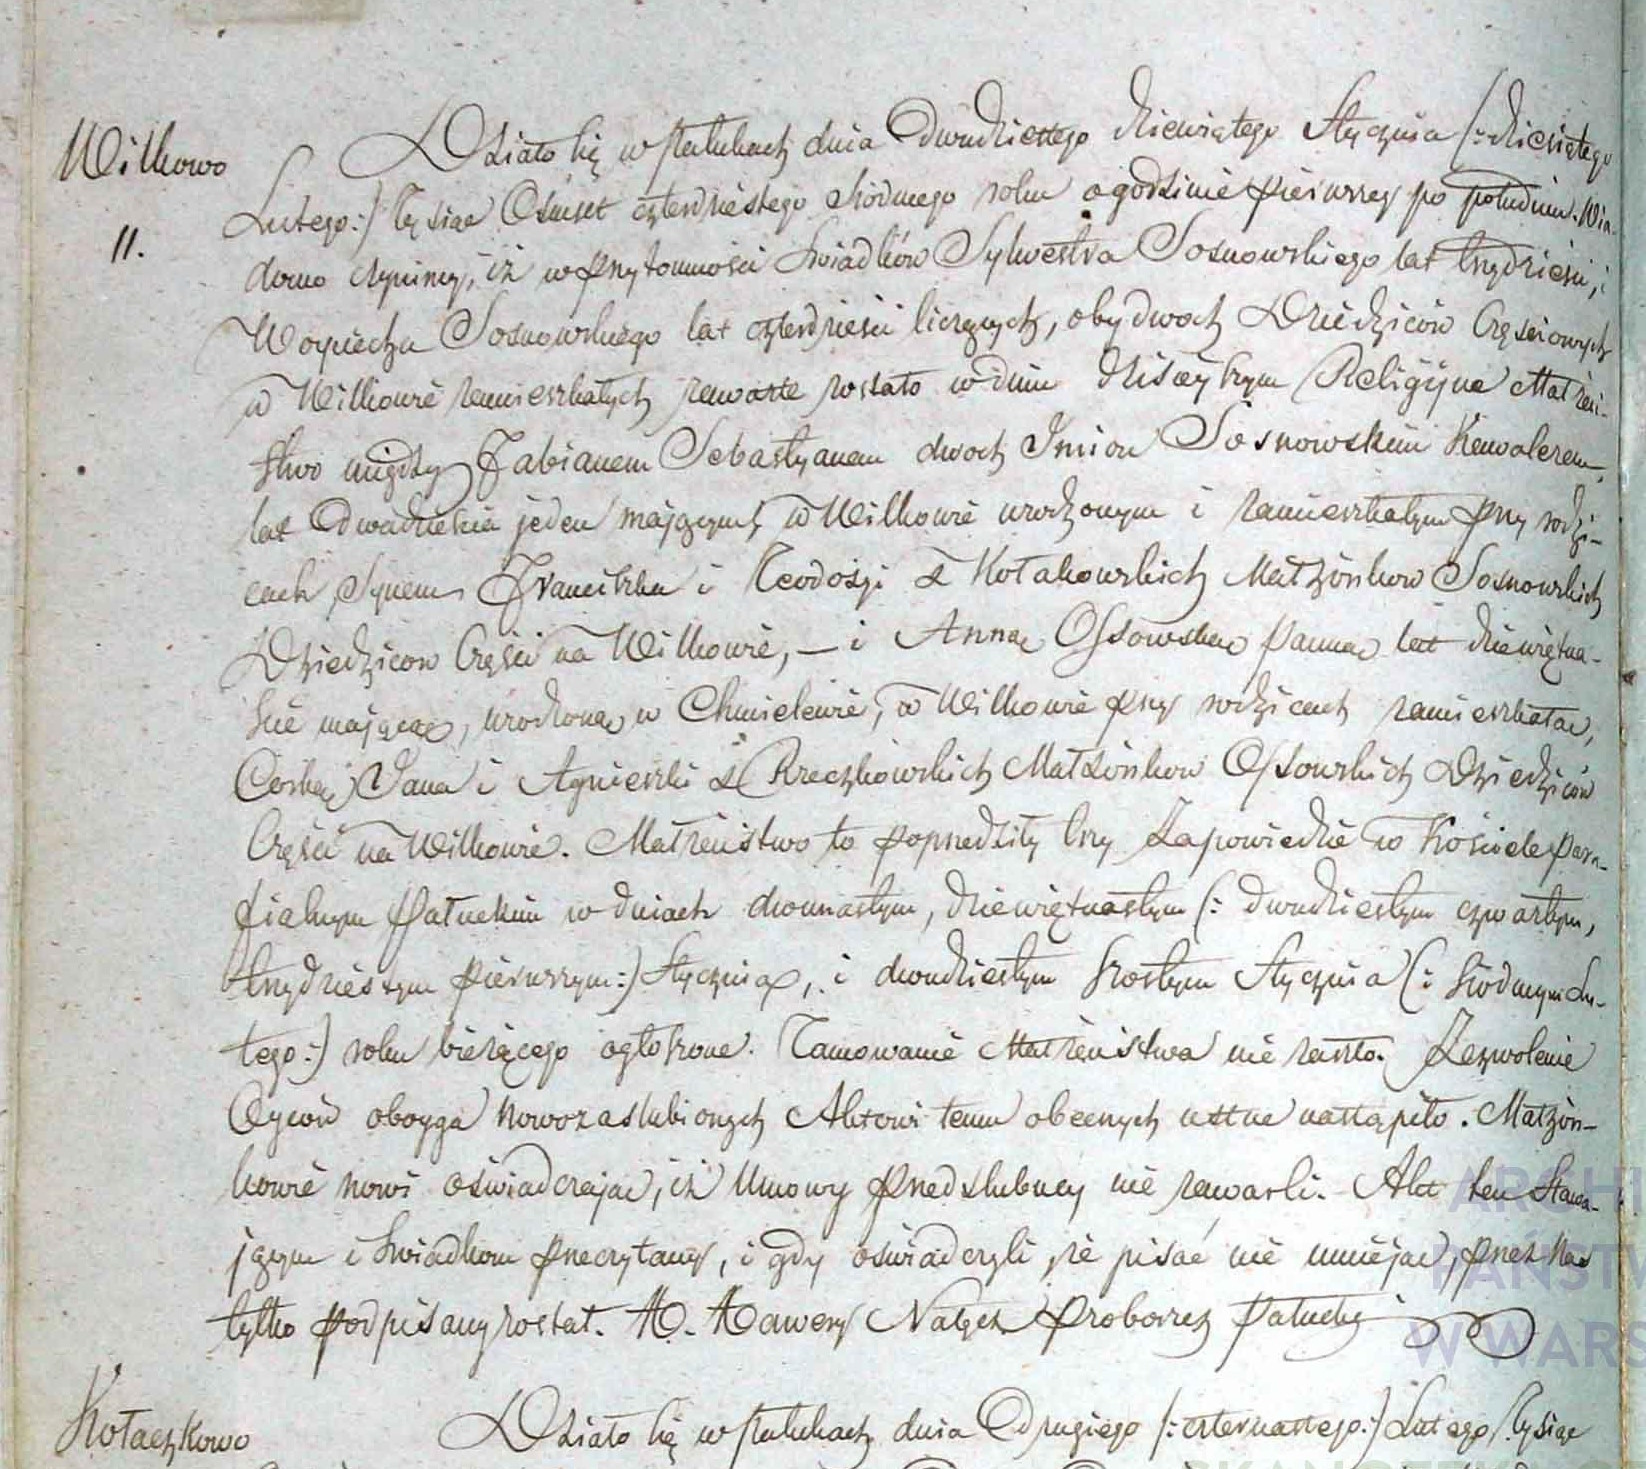 Wilkowo
11.
Działo się w Pałukach dnia Dwudziestego dziewiątego Stycznia (: dziesiątego
Lutego :) Tysiąc Osmset czterdziestego siódmego roku o godzinie pierwszey po południu. Wia-
domo czyniemy, iż w przytomności Świadków Sylwestra Sosnowskiego lat trzydzieści, i
Woyciecha Sosnowskiego lat czterdzieści liczących, obydwoch Dziedziców Częściowych
w Wilkowie zamieszkałych zawarte zostało w dniu dzisieyszym Religijne Małżeń-
stwo między Fabianem Sebastyanem dwoch Imion Sosnowskim Kawalerem,
lat Dwadzieścia jeden mającym, w Wilkowie urodzonym i zamieszkałym przy rodzi-
cach, Synem Franciszka i Teodozyi z Kołakowskich Małżonkow Sosnowskich
Dziedzicow Części na Wilkowie, — i Anną Ossowską Panną lat dziewiętna-
ście mającą, urodzoną w Chmielewie, w Wilkowie przy rodzicach zamieszkałą,
Corką Jana i Agnieszki z Rzeczkowskich Małżonkow Ossowskich Dziedziców
Części na Wilkowie. Małżeństwo to poprzedziły trzy Zapowiedzie w Kościele Para-
fialnym Pałuckim w dniach dwunastym, dziewiętnastym (: dwudziestym czwartym,
trzydziestym pierwszym :) Stycznia, i dwudziestym szostym Stycznia (: siodmym Lu-
tego :) roku bieżącego ogłoszone. Tamowanie Małżeństwa nie zaszło. Zezwolenie
Oyców oboyga Nowozaslubionych Aktowi temu obecnych ustne nastąpiło. Małżon-
kowie nowi oświadczają, iż Umowy przedslubney nie zawarli. Akt ten Stawa-
jącym i Świadkom przeczytany, i gdy oświadczyli, że pisać nie umieją, przez Nas
tylko podpisany został. X. Xawery Nałęcz Proboszcz Pałucki
Kołaczkowo
Działo się w Pałukach dnia Drugiego (: czternastego :) Lutego Tysiąc
ARCHI
PAŃSTW
W WARS